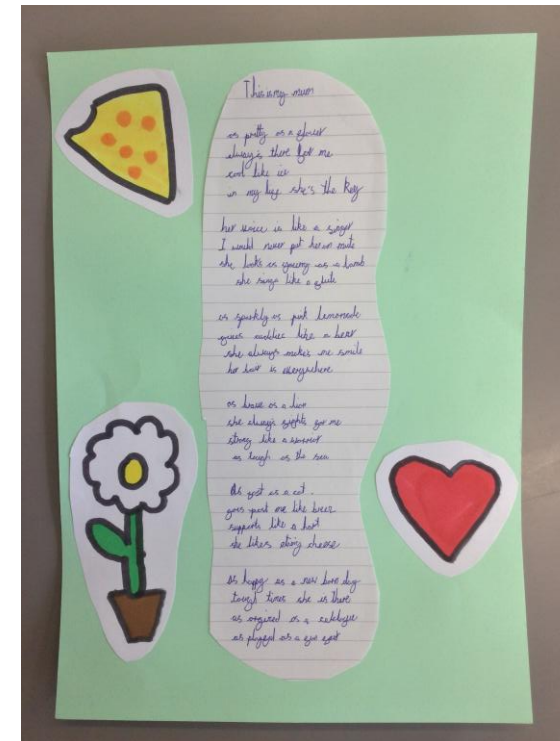 This is my mum
as pretty as a flower
always there for me
cool like ice
in my life she's the key
her voice is like a singer
I would never put her on mute
she looks as young as a lamb
she sings like a flute
as sparkly as pink lemonade
gives cuddles like a bear
she always makes me smile
her love is everywhere
as brave as a lion
she always fights for me
strong like a warrior
as tough as the sea
As fast as a cat
goes past me like
supports like a
she likes eating cheese
As happy as a new born dog
tough times she is there
as orgized as a catalogue
as as a